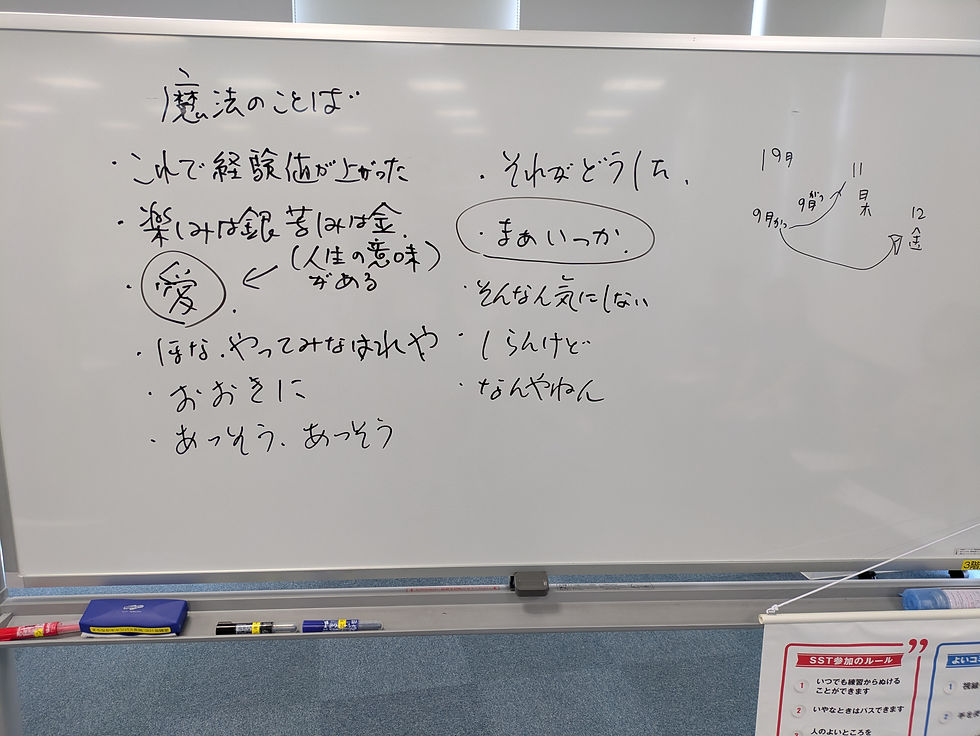 魔法のことば
・これで経験値が上がった
・楽しみは銀 苦しみは金.
(人生の意味)
がある
・愛.
・ほな、やってみなはれや
・おおきに
・あっそう、あっそう
・それがどうした、
・まぁいっか.
・そんなん気にしない
・しらんけど
・なんやねん
19月
11
9月がつ
12
金
3階
SST参加のルール
1 いつでも練習からぬける
ことができます
2 いやなときはパスできます
3 人のよいところを
よいコ
1 視線
2 手を